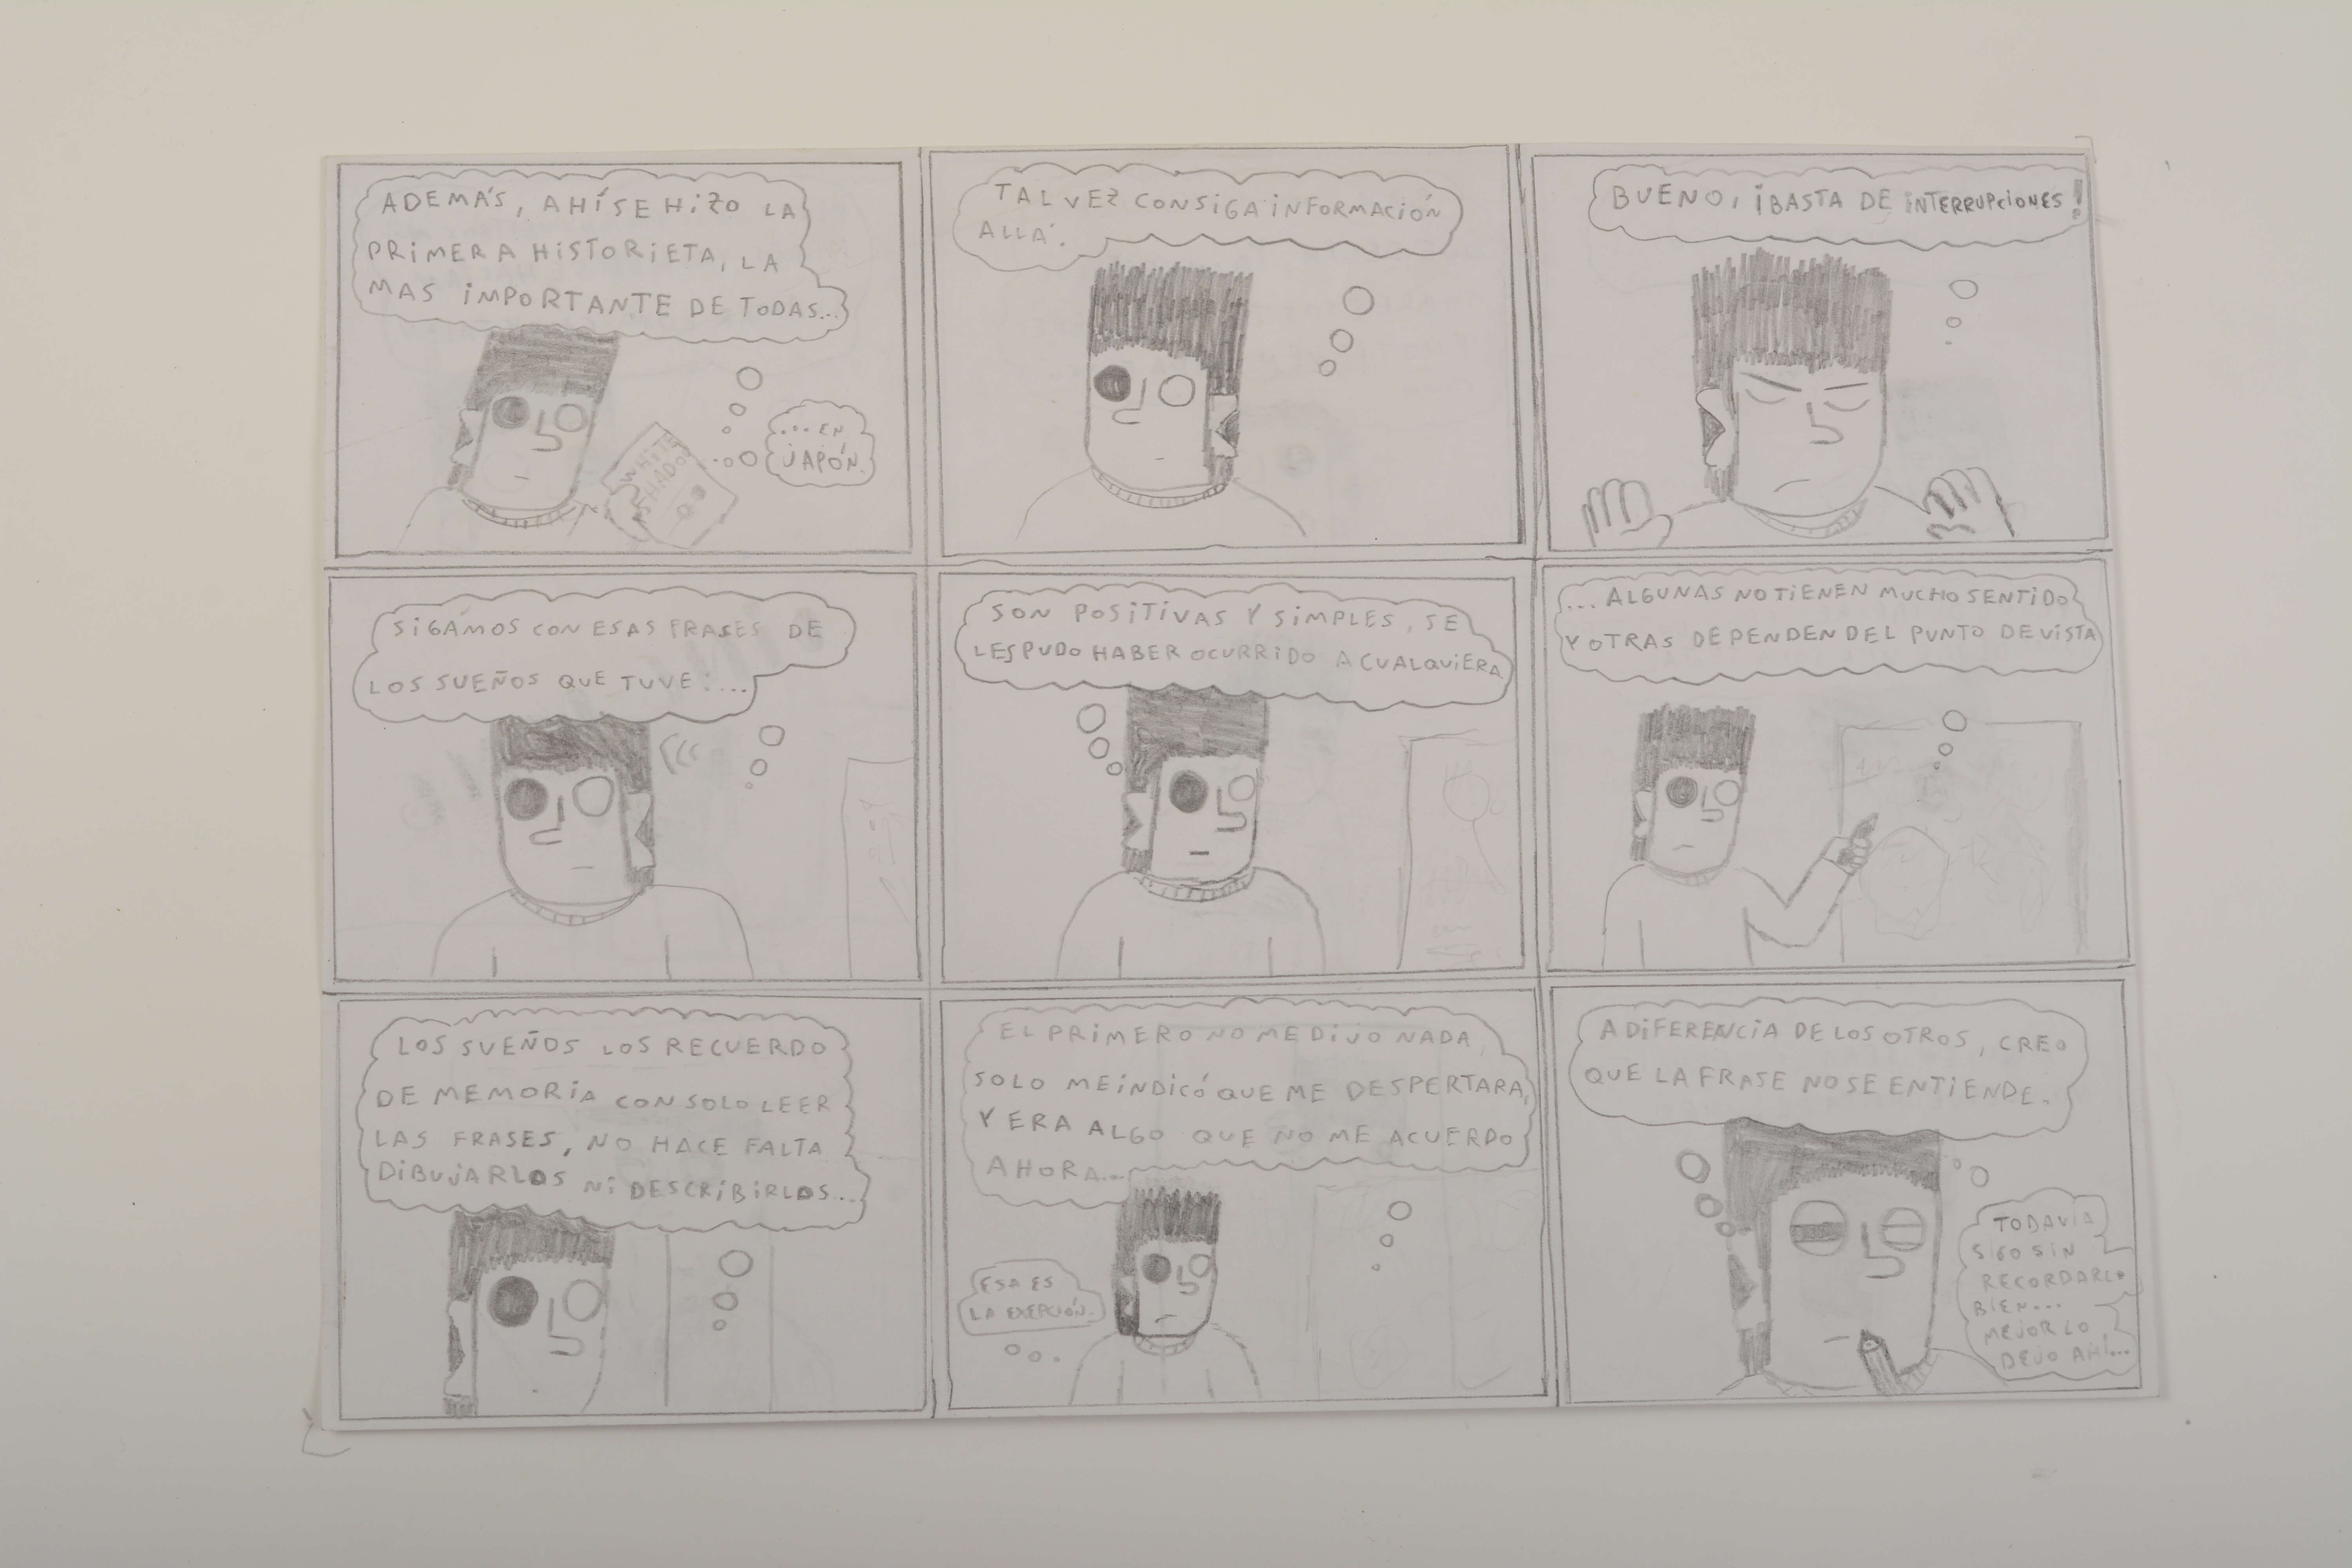 ADEMÁS, AHÍ SE HIZO LA
PRIMERA HISTORIETA, LA
MAS IMPORTANTE DE TODAS...
WHITE
SHADOW
...EN
JAPÓN.
TAL VEZ CONSIGA INFORMACIÓN
ALLÁ.
BUENO, ¡BASTA DE INTERRUPCIONES!
SIGÁMOS CON ESAS FRASES DE
LOS SUEÑOS QUE TUVE:...
SON POSITIVAS Y SIMPLES, SE
LES PUDO HABER OCURRIDO A CUALQUIERA
...ALGUNAS NO TIENEN MUCHO SENTIDO
Y OTRAS DEPENDEN DEL PUNTO DE VISTA
LOS SUEÑOS LOS RECUERDO
DE MEMORIA CON SOLO LEER
LAS FRASES, NO HACE FALTA
DIBUJARLOS NI DESCRIBIRLOS...
EL PRIMERO NO ME DIJO NADA,
SOLO ME INDICÓ QUE ME DESPERTARA,
Y ERA ALGO QUE NO ME ACUERDO
AHORA...
ESA ES
LA EXEPCIÓN.
A DIFERENCIA DE LOS OTROS, CREO
QUE LA FRASE NO SE ENTIENDE.
TODAVÍA
SIGO SIN
RECORDARLO
BIEN...
MEJOR LO
DEJO AHÍ...